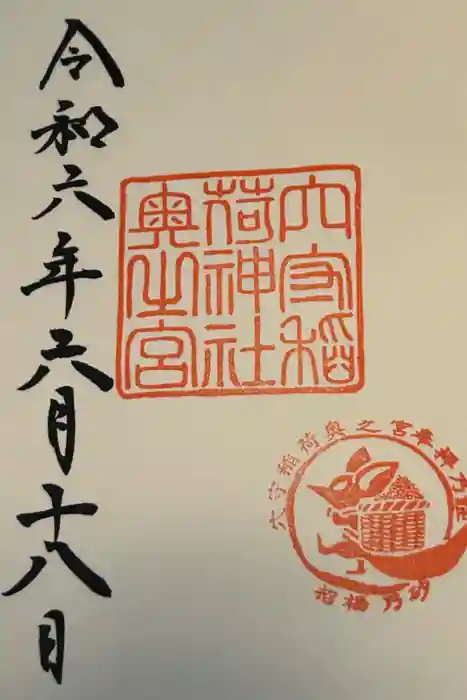 穴守稲
荷神社
奥之宮
穴守稲荷奥之宮奉拝乃証
招福乃砂
令和六年六月十八日